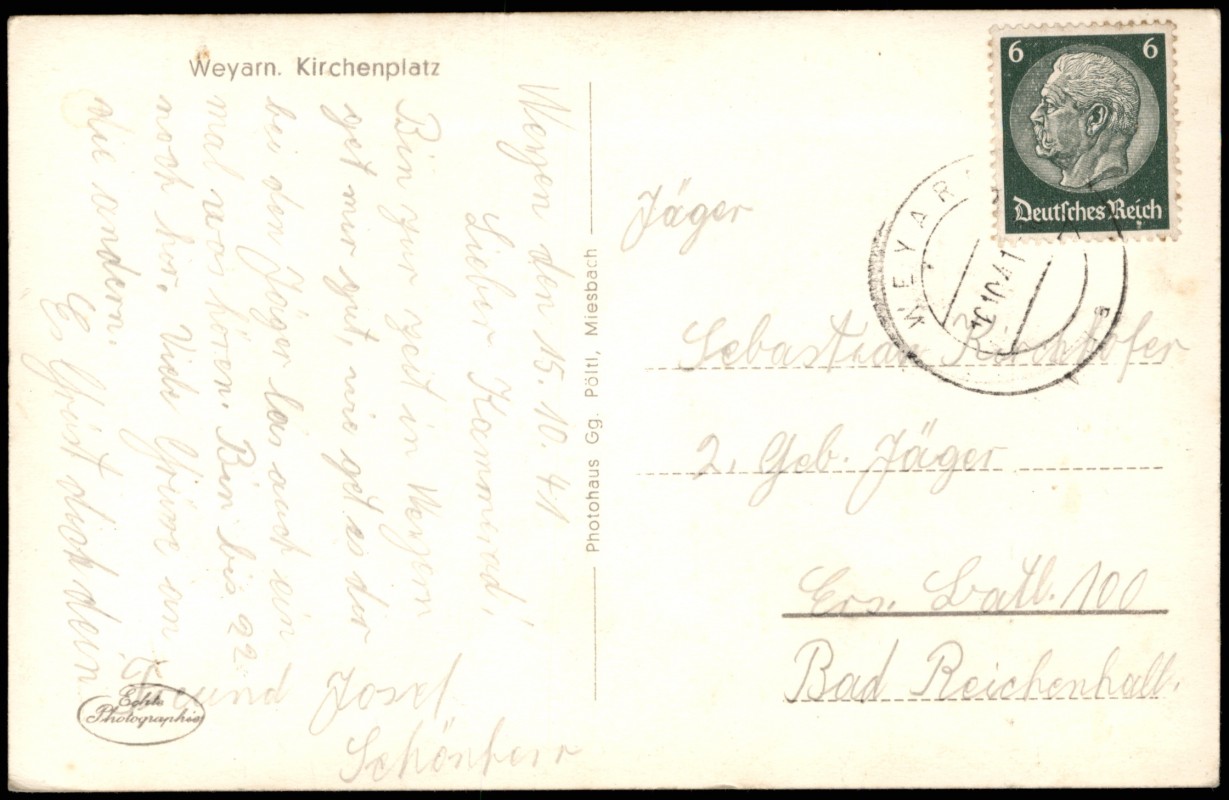 Weyarn. Kirchenplatz
Weyern den 15. 10. 41
Lieber Kammerad,
Bin zur zeit in Weyern
get mir gut, wie get es dir
bei den Jäger las auch ein
mal was hören. Bin bis 22
noch hir. Viele Grüße an
die andern.
Es Grüst dich dein
Freund Josef
Schönherr
Echte
Photographie
Photohaus Gg. Pöltl, Miesbach
6 6
Deutsches Reich
WEYAR
10.41
Jäger
Sebastian Kirchhofer
2. Geb. Jäger
Ers. Batl. 100
Bad Reichenhall.